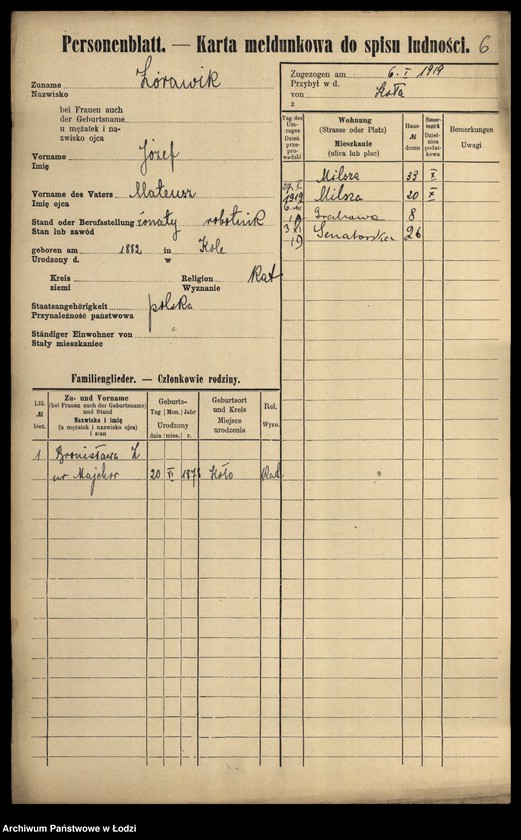 Personenblatt. — Karta meldunkowa do spisu ludności. 6
Zuname Żórawik
Nazwisko
bei Frauen auch
der Geburtsname
u mężatek i na-
zwisko ojca
Vorname Józef
Imię
Vorname des Vaters Mateusz
Imię ojca
Stand oder Berufsstellung żonaty robotnik
Stan lub zawód
geboren am 1882 in Kole
Urodzony d. w
Kreis Religion Kat
ziemi Wyznanie
Staatsangehörigkeit polska
Przynależność państwowa
Ständiger Einwohner von
Stały mieszkaniec
Zugezogen am 6. I 1919
Przybył w d.
von Koła
z
Tag des Um-zuges Dzień prze-prowadzki
Wohnung
(Strasse oder Platz)
Mieszkanie
(ulica lub plac)
Haus-
№
domu
Steuer-bezirk Dzielnica podat-kowa
Bemerkungen
Uwagi
Milsza 33 X
27. I 1919 Milsza 20 X
19 Grabowa 8
3 XI 19 Senatorska 26
Familienglieder. — Członkowie rodziny.
Lfd.
№
bież.
Zu- und Vorname
(bei Frauen auch der Geburtsname)
und Stand
Nazwisko i imię
(u mężatek i nazwisko ojca)
i stan
Geburts-
Tag Mon. Jahr
Urodzony
dnia mies. r.
Geburtsort
und Kreis
Miejsce
urodzenia
Rel.
Wyzn.
1 Bronisława Ż
ur Majcher 20 VI 1878 Koło Kat
Archiwum Państwowe w Łodzi